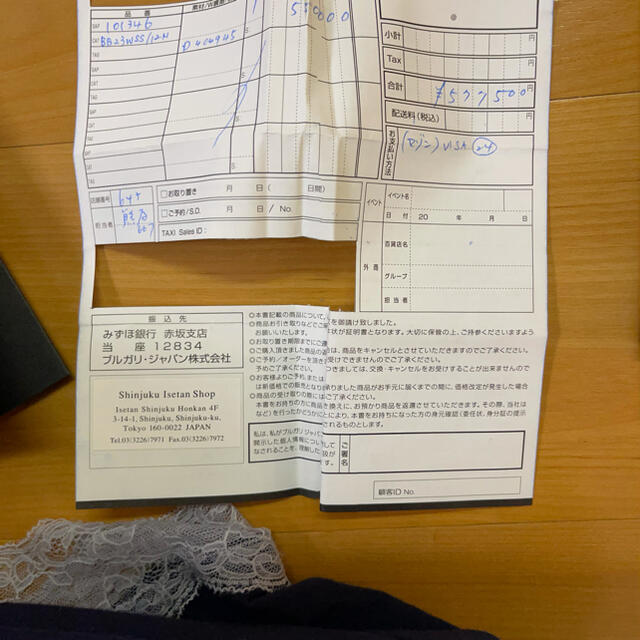 品番
SAP 101346
550000
CAT BB23WSS/12N
D404945
TAG
SAP
CAT
TAG
SAP
CAT
TAG
SAP
CAT
TAG
S
S
S
S
小計 円
Tax 円
合計 ¥577500 円
配送料(税込) 円
お支払い方法
VISA 24
店舗番号
担当者
□お取り置き 月 日( 日間)
□ご予約/S.D. 月 日 / No.
TAXI Sales ID :
イベント
イベント名
日付 20 年 月 日
外商
百貨店名
グループ
担当者
振込先
みずほ銀行 赤坂支店
当 座 12834
ブルガリ・ジャパン株式会社
Shinjuku Isetan Shop
Isetan Shinjuku Honkan 4F
3-14-1, Shinjuku, Shinjuku-ku,
Tokyo 160-0022 JAPAN
Tel.03(3226)7971 Fax.03(3226)7972
◎本書記載の商品について、
を御請け致しました。
◎商品お引き取りなどでご
状が証明書となります。大切に保管の上、ご持参くださいますよう
お願いいたします。
◎お取り置き期限までにご連
は、商品をキャンセルとさせていただきますのでご了承ください。
◎ご購入頂きました商品の返
受けできませんのでご了承ください。
◎ご予約/オーダーを頂き
つきましては、交換・キャンセルをお受けすることが出来ませんので
予めご了承ください。
◎お客様よりご予約、または
承りました商品がお手元に届くまでの間に、価格改定が発生した場合
は新価格での販売となり
ご了承ください。
◎商品の受け取りの際に
換えに、お預かり商品を返還させていただきます。その際、当社は
本書をお持ちの方に商品
本書をお持ちになった方の身元確認(委任状、身分証の提示
など)を行ったかどうかにより
されるものとします。
私は、私がブルガリ ジャパン
開示した個人情報について
なされることを、理解した
ご署名
顧客ID No.